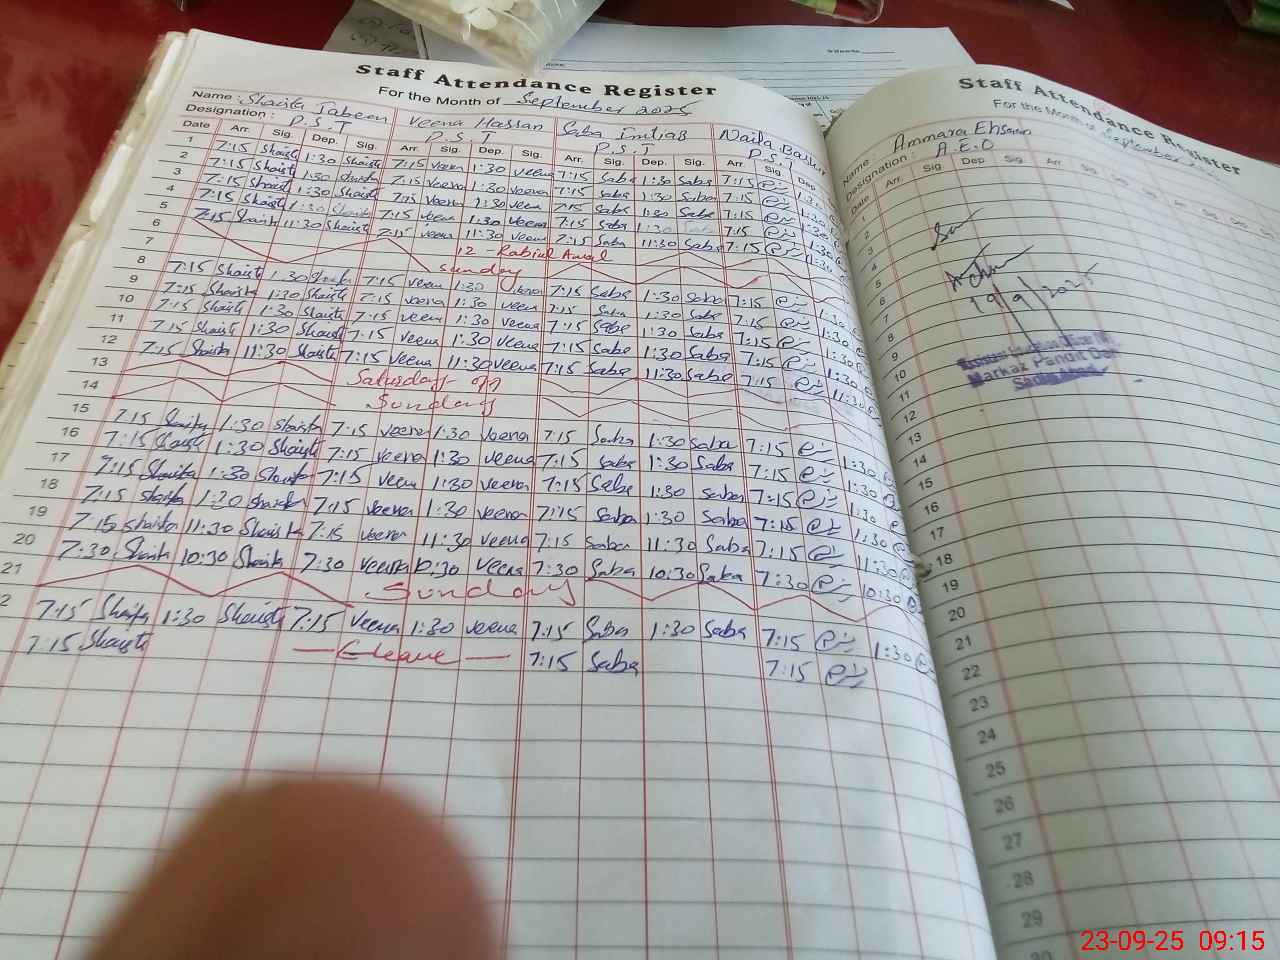 Staff Attendance Register
For the Month of September 2025
Name : Shaista Jabeen Veena Hassan Saba imtiaB Naila Bashir
Designation : P.S.T P.S.T P.S.T P.S.T
Date Arr. Sig. Dep. Sig. Arr. Sig. Dep. Sig. Arr. Sig. Dep. Sig. Arr. Sig. Dep
1 7:15 Shaista 1:30 Shaista 7:15 Veena 1:30 Veena 7:15 Saba 1:30 Saba 7:15 1:30
2 7:15 Shaista 1:30 Shaista 7:15 Veena 1:30 Veena 7:15 Saba 1:30 Saba 7:15 1:30
3 7:15 Shaista 1:30 Shaista 7:15 Veena 1:30 Veena 7:15 Saba 1:30 Saba 7:15 1:30
4 7:15 Shaista 1:30 Shaista 7:15 Veena 1:30 Veena 7:15 Saba 1:30 Saba 7:15 1:30
5 7:15 Shaista 11:30 Shaista 7:15 Veena 11:30 Veena 7:15 Saba 11:30 Saba 7:15 11:30
6 12 - Rabiul Awal
7 Sunday
8 7:15 Shaista 1:30 Shaista 7:15 Veena 1:30 Veena 7:15 Saba 1:30 Saba 7:15 1:30
9 7:15 Shaista 1:30 Shaista 7:15 Veena 1:30 Veena 7:15 Saba 1:30 Saba 7:15 1:30
10 7:15 Shaista 1:30 Shaista 7:15 Veena 1:30 Veena 7:15 Saba 1:30 Saba 7:15 1:30
11 7:15 Shaista 1:30 Shaista 7:15 Veena 1:30 Veena 7:15 Saba 1:30 Saba 7:15 1:30
12 7:15 Shaista 11:30 Shaista 7:15 Veena 11:30 Veena 7:15 Saba 11:30 Saba 7:15 11:30
13 Saturday off
14 Sunday
15 7:15 Shaista 1:30 Shaista 7:15 Veena 1:30 Veena 7:15 Saba 1:30 Saba 7:15 1:30
16 7:15 Shaista 1:30 Shaista 7:15 Veena 1:30 Veena 7:15 Saba 1:30 Saba 7:15 1:30
17 7:15 Shaista 1:30 Shaista 7:15 Veena 1:30 Veena 7:15 Saba 1:30 Saba 7:15 1:30
18 7:15 Shaista 1:20 Shaista 7:15 Veena 1:30 Veena 7:15 Saba 1:30 Saba 7:15 1:30
19 7:15 Shaista 11:30 Shaista 7:15 Veena 11:30 Veena 7:15 Saba 11:30 Saba 7:15 11:30
20 7:30 Shaista 10:30 Shaista 7:30 Veena 10:30 Veena 7:30 Saba 10:30 Saba 7:30 10:30
21 Sunday
2 7:15 Shaista 1:30 Shaista 7:15 Veena 1:30 Veena 7:15 Saba 1:30 Saba 7:15 1:30
7:15 Shaista Leave 7:15 Saba 7:15
Staff Attendance Register
For the Month of September
Name : Ammara Ehsan
Designation : A.E.O
Date Arr. Sig Dep Sig. Arr. Sig
1
2
3
4
5
6
7
8
9
10
11
12
13
14
15
16
17
18
19
20
21
22
23
24
25
26
27
28
29
30
19/9/2025
Markaz Pandit
23-09-25 09:15